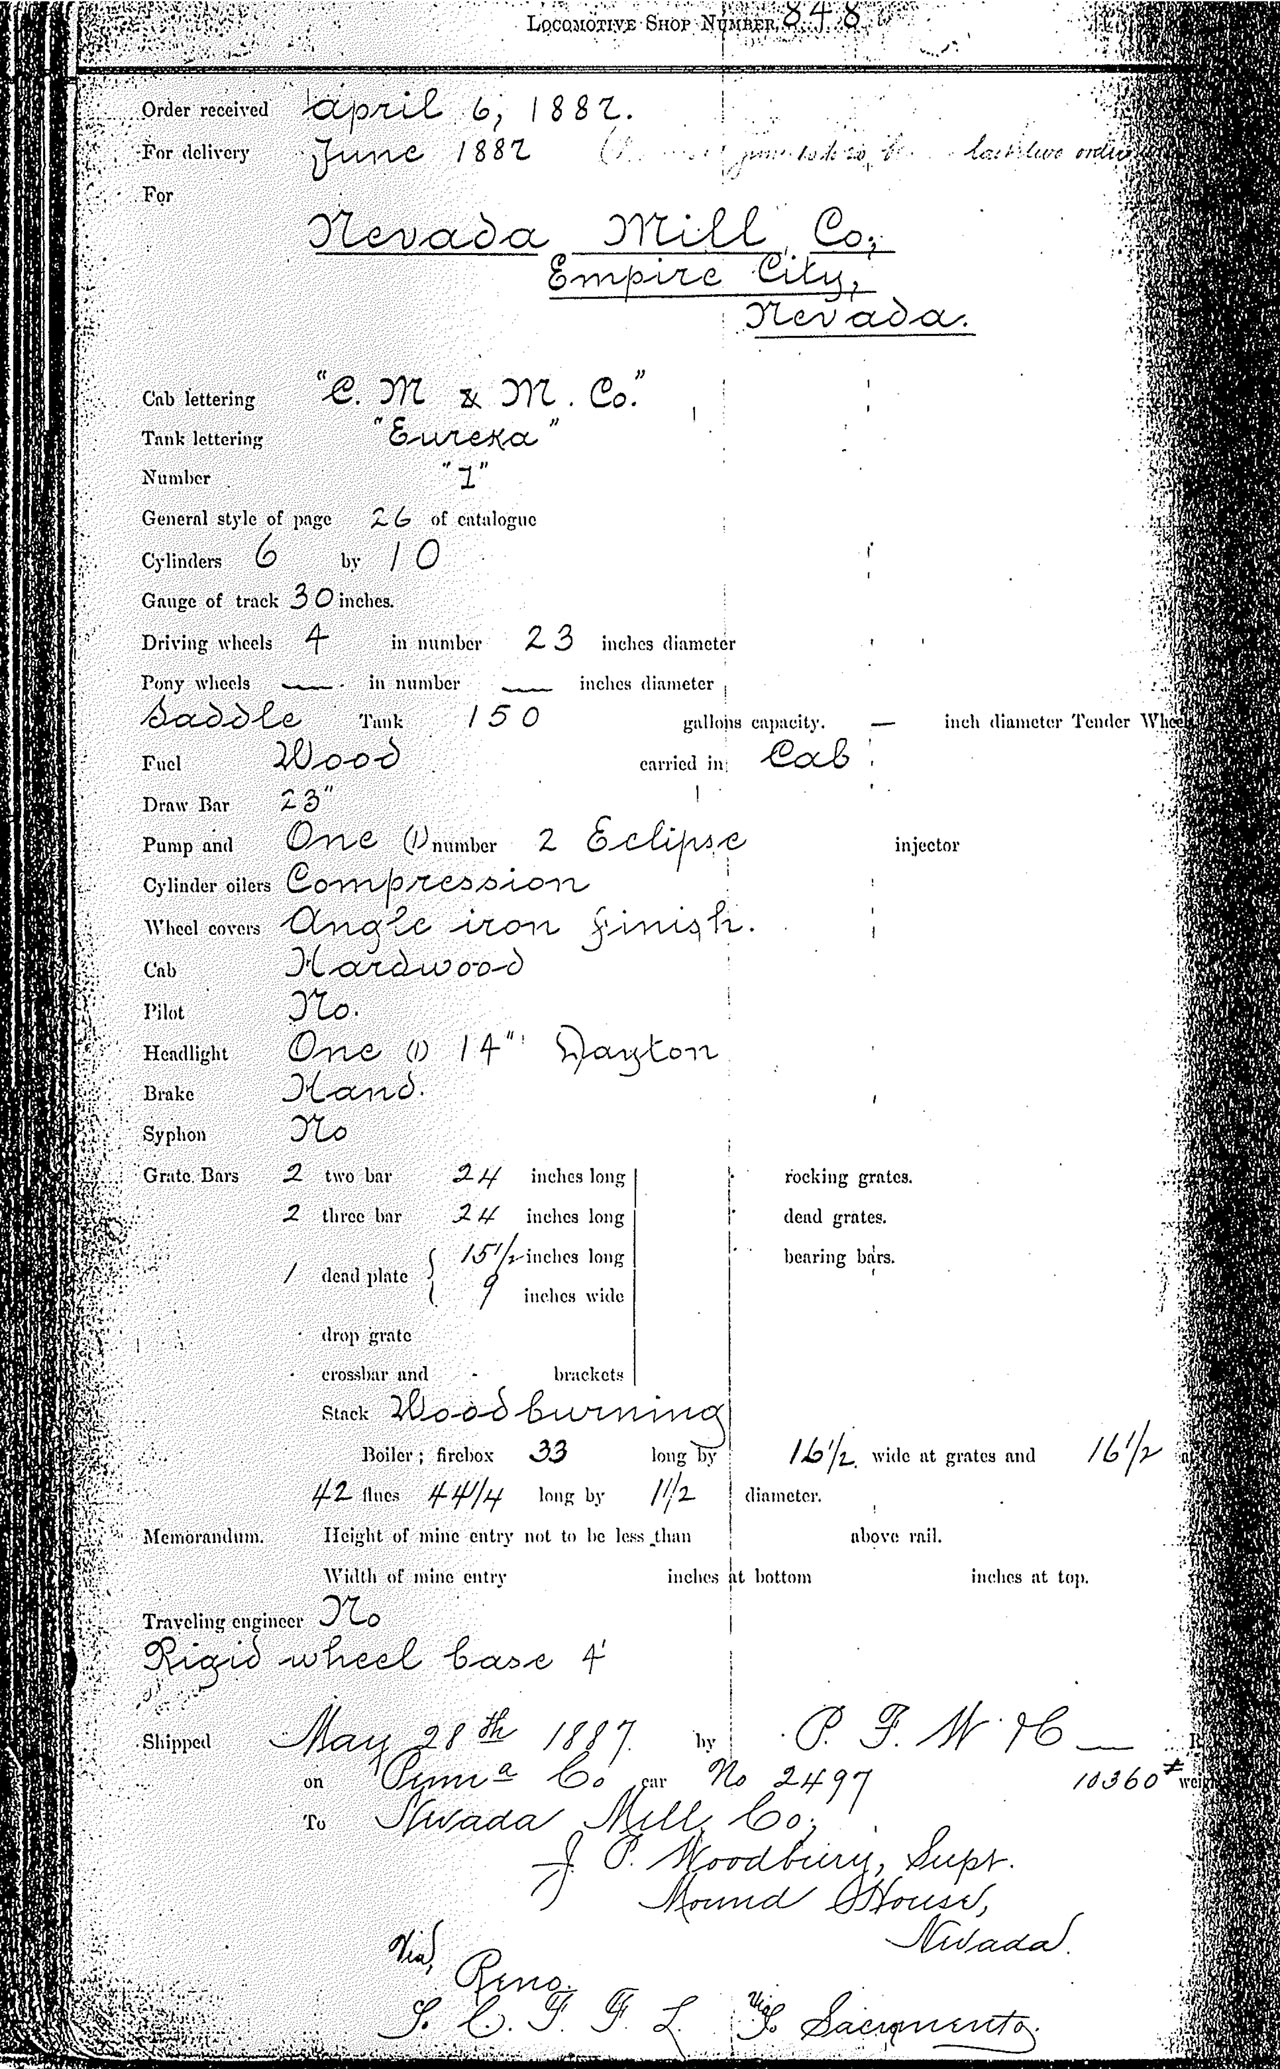 LOCOMOTIVE SHOP NUMBER, 848
Order received April 6, 1887.
For delivery June 1887 last two orders
For
Nevada Mill Co;
Empire City,
Nevada.
Cab lettering "C. M & M. Co."
Tank lettering "Eureka"
Number "1"
General style of page 26 of catalogue
Cylinders 6 by 10
Gauge of track 30 inches.
Driving wheels 4 in number 23 inches diameter
Pony wheels — in number — inches diameter
Saddle Tank 150 gallons capacity. — inch diameter Tender Wheels
Fuel Wood carried in Cab
Draw Bar 23"
Pump and One (1) number 2 Eclipse injector
Cylinder oilers Compression
Wheel covers Angle iron finish.
Cab Hardwood
Pilot No.
Headlight One (1) 14" Dayton
Brake Hand.
Syphon No
Grate Bars 2 two bar 24 inches long rocking grates.
2 three bar 24 inches long dead grates.
1 dead plate { 15 1/2 inches long bearing bars.
9 inches wide
drop grate
crossbar and brackets
Stack Woodburning
Boiler; firebox 33 long by 16 1/2 wide at grates and 16 1/2
42 flues 44 1/4 long by 1 1/2 diameter.
Memorandum. Height of mine entry not to be less than above rail.
Width of mine entry inches at bottom inches at top.
Traveling engineer No
Rigid wheel base 4'
Shipped May 28th 1887. by P. F. W. & C —
on Penna Co car No 2497 10360# weight
To Nevada Mill Co;
J. P. Woodbury, Supt.
Mound House,
Nevada.
Via, Reno.
S. C. F. F. L. Via S. Sacramento.